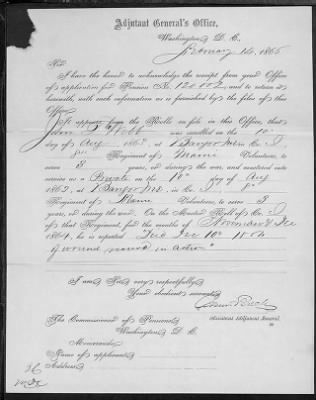 Adjutant General's Office,
Washington, D. C.,
February 14, 1865
Sir:
I have the honor to acknowledge the receipt from your Office
of application for Pension No. and to return it
herewith, with such information as is furnished by the files of this
Office.
It appears from the Rolls on file in this Office, that
John Webb was enrolled on the 10
day of Aug, 1862, at Bangor Me in Co. I,
8" Regiment of Maine Volunteers, to
serve 3 years, or during the war, and mustered into
service as a Private on the day of Aug
1862, at Bangor Me., in Co. I, 8"
Regiment of Maine Volunteers, to serve 3
years, or during the war. On the Muster Roll of Co. I
of that Regiment, for the months of November & Dec
1864, he is reported "Died Dec 10" 1864
of wound received in action"
I am, Sir, very respectfully,
Your obedient servant,
Assistant Adjutant General.
The Commissioner of Pensions,
Washington, D. C.
Memoranda:
Name of applicant,
Address,